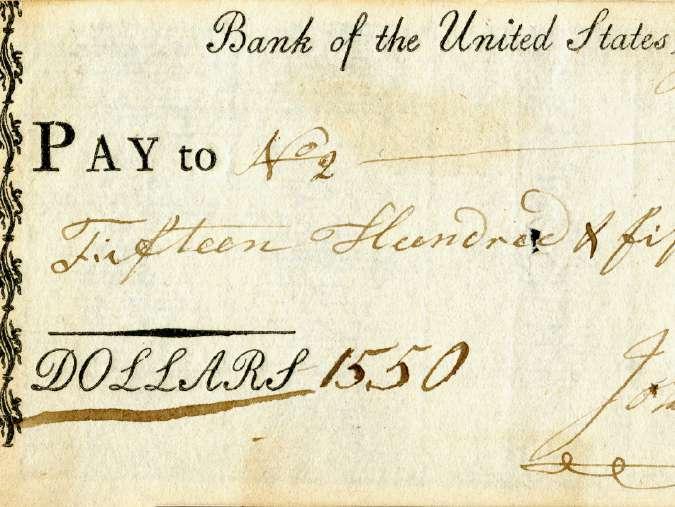 Bank of the United States,
PAY to No 2
Fifteen Hundred & fif
DOLLARS 1550